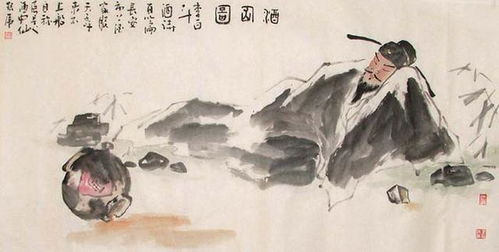 酒仙圖
李白一斗
酒詩
百篇
長安市上酒
家眠
天子呼來不
上船自稱
臣是
酒中仙